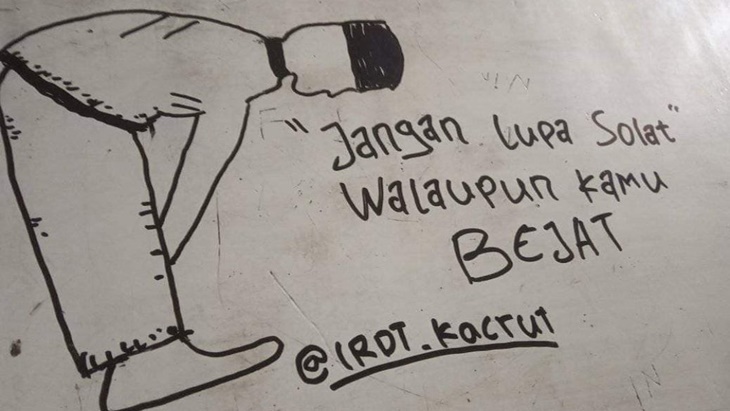 "Jangan lupa Solat"
Walaupun kamu
BEJAT
@IRDT.kacrut